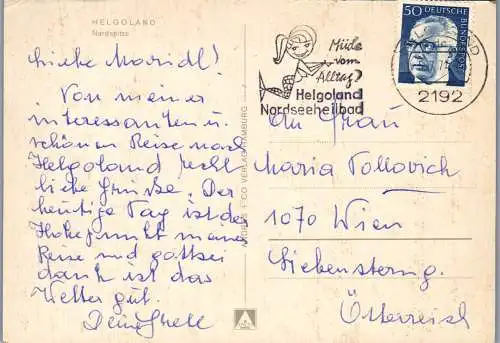 HELGOLAND
Nordspitze
Liebe Maridl!
Von meiner
interessanten u.
schönen Reise nach
Helgoland recht
liebe Grüße. Der
heutige Tag ist der
Höhepunkt meiner
Reise und gottsei
dank ist das
Wetter gut.
Deine
Müde
vom
Alltag?
Helgoland
Nordseeheilbad
50
DEUTSCHE
BUNDESPOST
2192
An Frau
Maria Tollovich
1070 Wien
Siebensterng.
Österreich